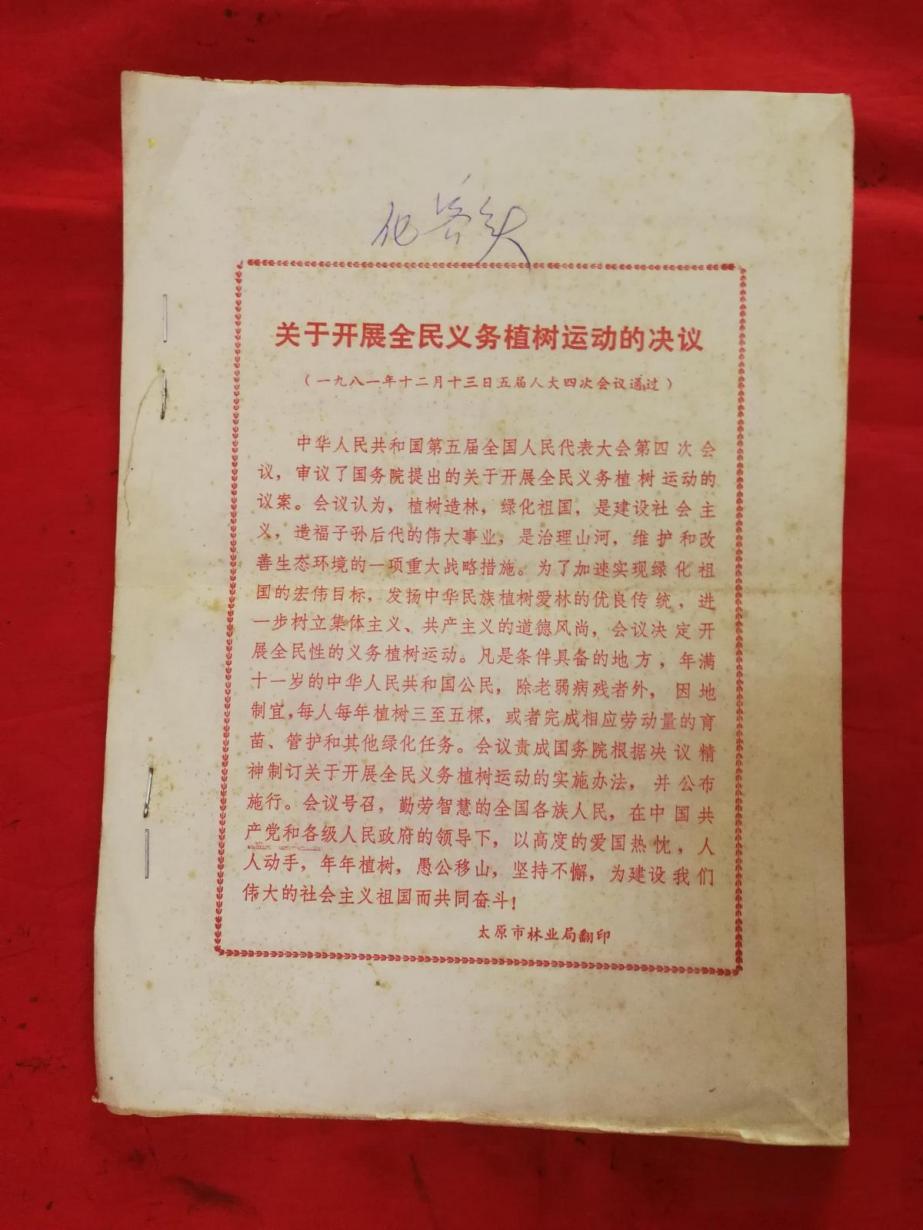 关于开展全民义务植树运动的决议
（一九八一年十二月十三日五届人大四次会议通过）
中华人民共和国第五届全国人民代表大会第四次会
议，审议了国务院提出的关于开展全民义务植树运动的
议案。会议认为，植树造林，绿化祖国，是建设社会主
义，造福子孙后代的伟大事业，是治理山河，维护和改
善生态环境的一项重大战略措施。为了加速实现绿化祖
国的宏伟目标，发扬中华民族植树爱林的优良传统，进
一步树立集体主义、共产主义的道德风尚，会议决定开
展全民性的义务植树运动。凡是条件具备的地方，年满
十一岁的中华人民共和国公民，除老弱病残者外，因地
制宜，每人每年植树三至五棵，或者完成相应劳动量的育
苗、管护和其他绿化任务。会议责成国务院根据决议精
神制订关于开展全民义务植树运动的实施办法，并公布
施行。会议号召，勤劳智慧的全国各族人民，在中国共
产党和各级人民政府的领导下，以高度的爱国热忱，人
人动手，年年植树，愚公移山，坚持不懈，为建设我们
伟大的社会主义祖国而共同奋斗！
太原市林业局翻印